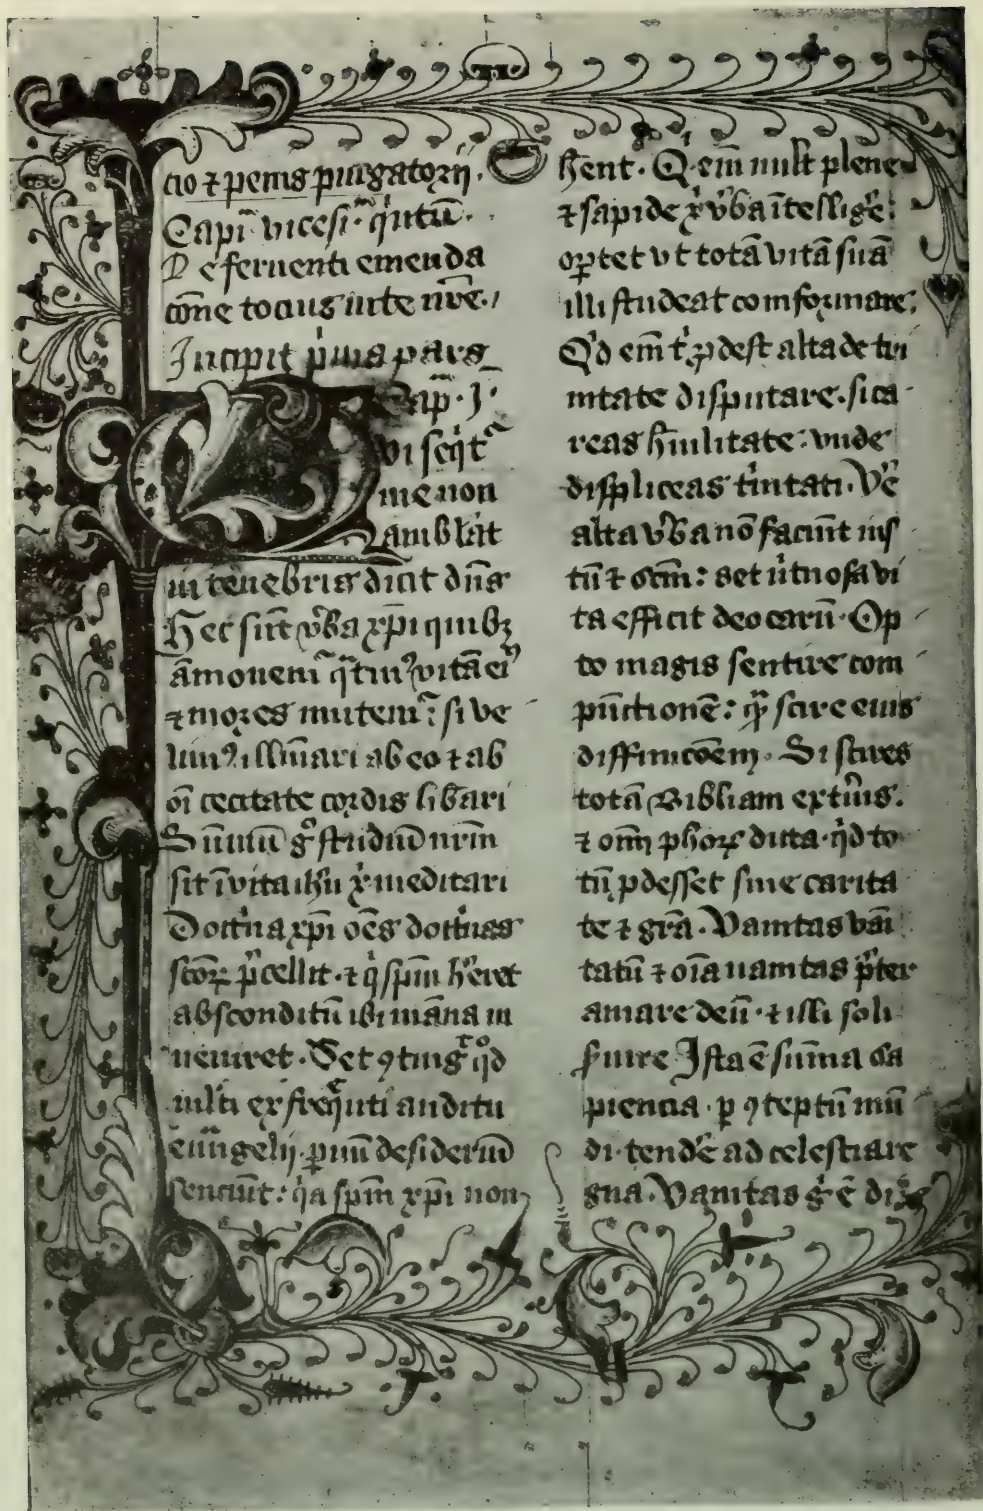 cio ⁊ penis purgatorij.
Capi᷑ vicesi᷑ q̇ntū.
De feruenti emenda
cōne tocius uite nr̄e.
Incipit p̓ma pars
Cap᷑. I.
Qvi seq̇t᷑
me non
ambulat
in tenebris dicit dn̄s
Hec sūt v̓ba xp̄i quibꝫ
āmonem᷑ q̄tinꝰ vitā eiꝰ
⁊ mores mutem᷑: si ve
limꝰ illūīari ab eo ⁊ ab
oī cecitate cordis lib̓ari
Sūmū g̊ studiū nr̄m
sit ī vita ih̄u x̄ meditari
Doctͥna xp̄i oēs doctͥnas
scōꝝ p̓cellit. ⁊ q̇ spm̄ h̓eret
absconditū ibi māna in
ueniret. Set ꝯting̓t qͦd
ml̄ti ex freq̄nti auditu
eūāngelij. ꝑuū desideriū
senciūt: q̇a spm̄ xp̄i non
hn̄t. Q em̄ vult plene
⁊ sapide x̄ v̓ba ītellig̓e:
oꝑtet vt totā vitā suā
illi studeat comformare:
Qͥd em̄ t̓ ꝓdest alta de tri
nitate disputare. si ca
reas hūilitate: vnde
displiceas tͥnitati. Ve̓
alta v̓ba nō faciūt ius
tū ⁊ scm̄: set v̓tuosa vi
ta efficit deo carū. Op
to magis sentire com
pūctionē: qͣ scire eius
diffinicōem. Si scires
totā Bibliam extͥus.
⁊ om̄ ph̄oꝝ dicta. qͥd to
tū ꝓdesset sine carita
te ⁊ grā. Vanitas vāi
tatū ⁊ oīa uanitas p̓ter
amare deū. ⁊ illi soli
s̓uire Ista ē sūma sa
piencia. ꝑ ꝯteptū mū
di. tend̓e ad celestia re
gna. Vanitas g̊ ē diui